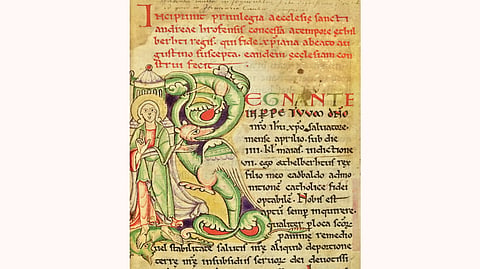 Incipiunt privilegia aecclesię sancti
andreae hrofensis concessa a tempore ęthil
berhti regis. qui fide xp̄iana a beato au
gustino suscepta. eandem ecclesiam con
strui fecit
REGNANTE
IN PERPETUUM DÑO
nr̄o ihu xp̄o salvatore
mense aprilio. sub die
iiii. kl̄ maias. indictione
vii. ego æthelberhtus rex
filio meo eadbaldo admo
nitione catholice fidei
optabilem. Nobis est
aptum semper inquirere.
qualiter per loca scōr
pro animę remedio
vel stabilitate salutis nr̄ę aliquid de portione
terrę nr̄ę in subsidiis servor dei devotissi